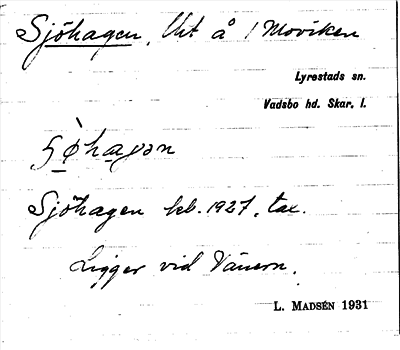 Sjöhagen, Utt å / Moviken
Lyrestads sn.
Vadsbo hd. Skar. l.
Sjöhagen kb. 1927, tax.
Ligger vid Vänern.
L. MADSÉN 1931